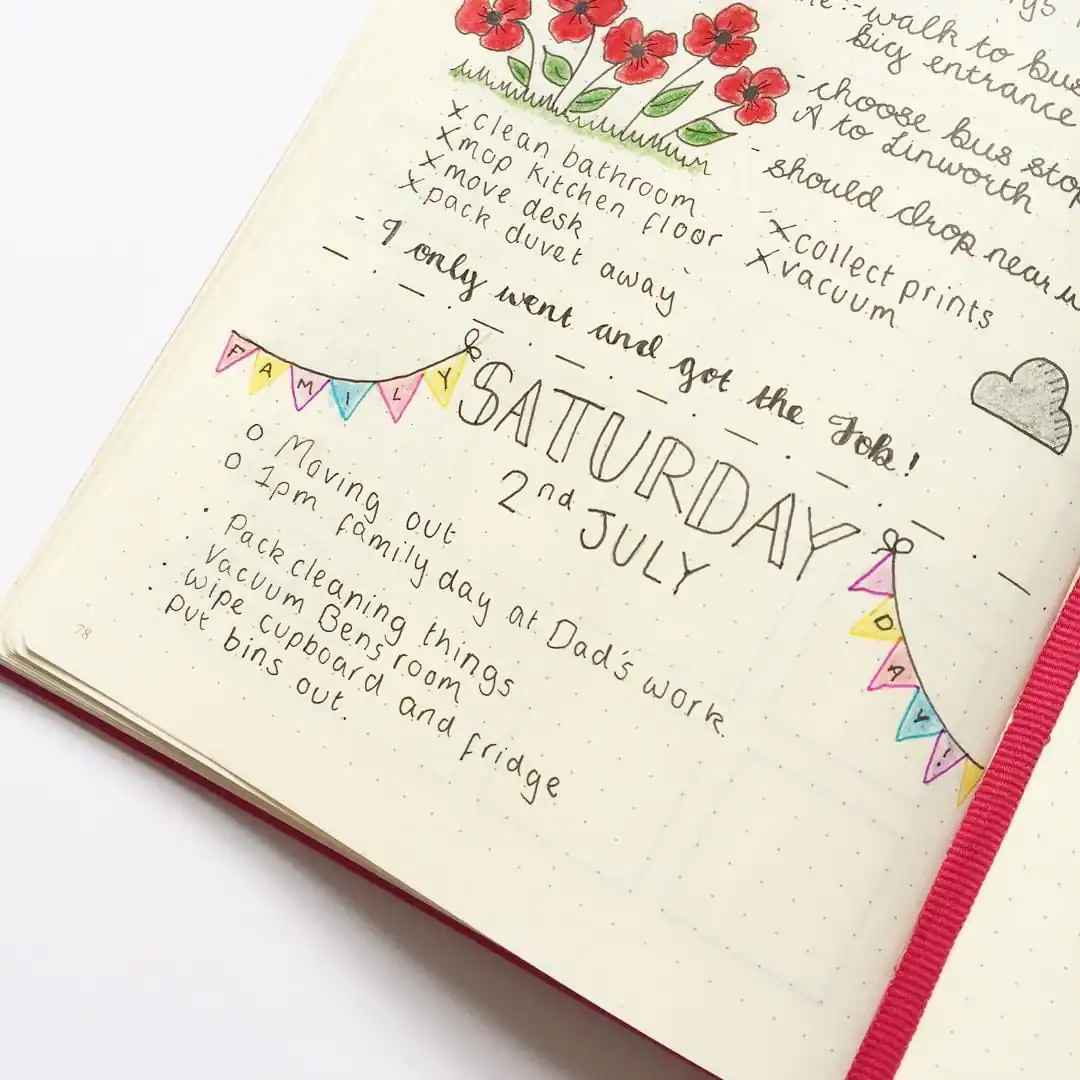 walk to bus
big entrance
- choose bus stop
A to Linworth
- should drop near
x clean bathroom
x mop kitchen floor
x move desk
x pack duvet away
x collect prints
x vacuum
- I only went and got the Job!
FAMILY
SATURDAY
2nd JULY
DAY!
O Moving out
O 1pm family day at Dad's work
· Pack cleaning things
· Vacuum Bens room
· wipe cupboard and fridge
· put bins out.
78